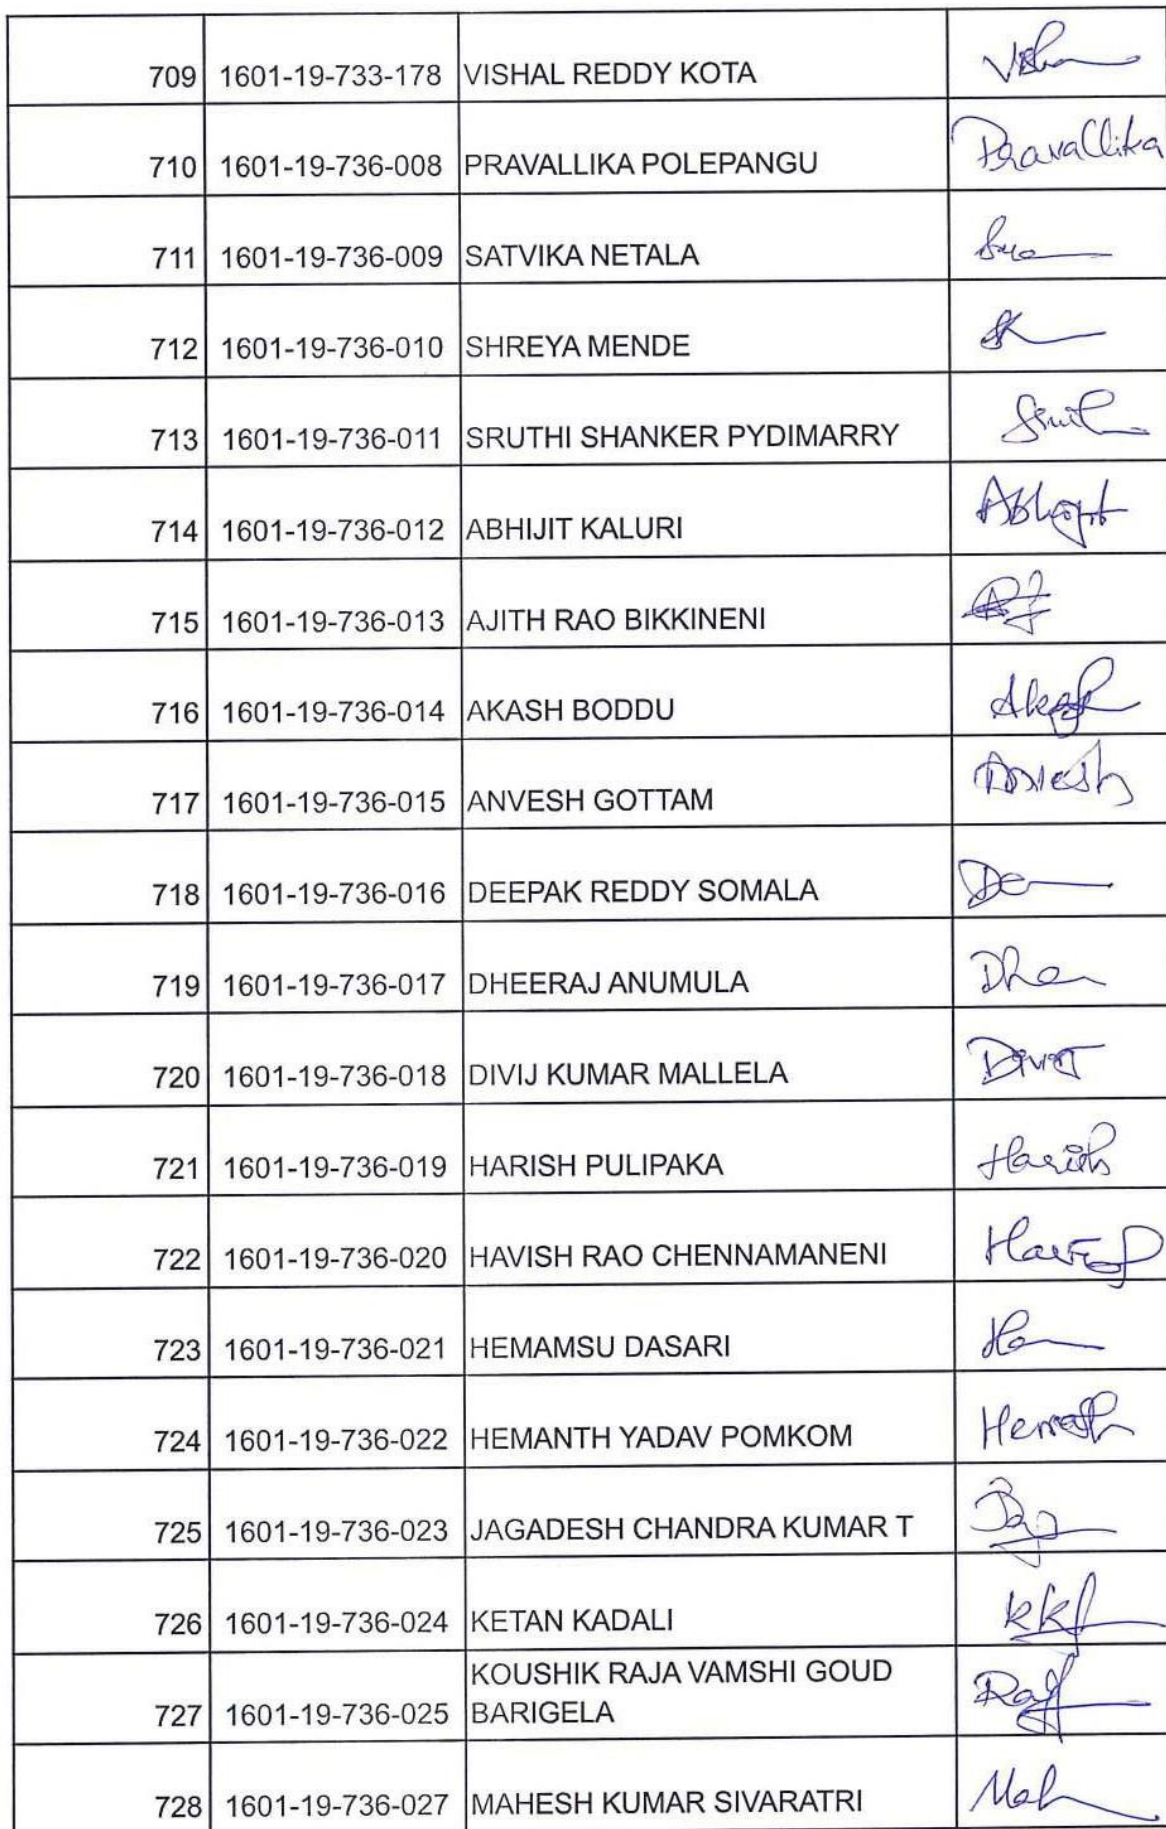 709 1601-19-733-178 VISHAL REDDY KOTA
710 1601-19-736-008 PRAVALLIKA POLEPANGU Pravallika
711 1601-19-736-009 SATVIKA NETALA
712 1601-19-736-010 SHREYA MENDE
713 1601-19-736-011 SRUTHI SHANKER PYDIMARRY
714 1601-19-736-012 ABHIJIT KALURI Abhijit
715 1601-19-736-013 AJITH RAO BIKKINENI
716 1601-19-736-014 AKASH BODDU Akash
717 1601-19-736-015 ANVESH GOTTAM Anvesh
718 1601-19-736-016 DEEPAK REDDY SOMALA
719 1601-19-736-017 DHEERAJ ANUMULA
720 1601-19-736-018 DIVIJ KUMAR MALLELA
721 1601-19-736-019 HARISH PULIPAKA Harish
722 1601-19-736-020 HAVISH RAO CHENNAMANENI
723 1601-19-736-021 HEMAMSU DASARI
724 1601-19-736-022 HEMANTH YADAV POMKOM
725 1601-19-736-023 JAGADESH CHANDRA KUMAR T
726 1601-19-736-024 KETAN KADALI
KOUSHIK RAJA VAMSHI GOUD
727 1601-19-736-025 BARIGELA
728 1601-19-736-027 MAHESH KUMAR SIVARATRI